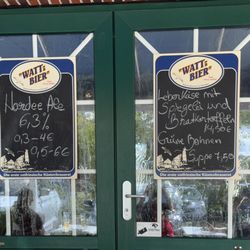 "WATT'S
BIER"
Nordee Ale
6,3%
0,3-4€
0,5-6€
Die erste ostfriesische Küstenbrauerei
"WATT'S
BIER"
Leberkäse mit
Spiegelei und
Bratkartoffeln
14,50€
Grüne Bohnen
Suppe 7,50
Die erste ostfriesische Küstenbrauerei